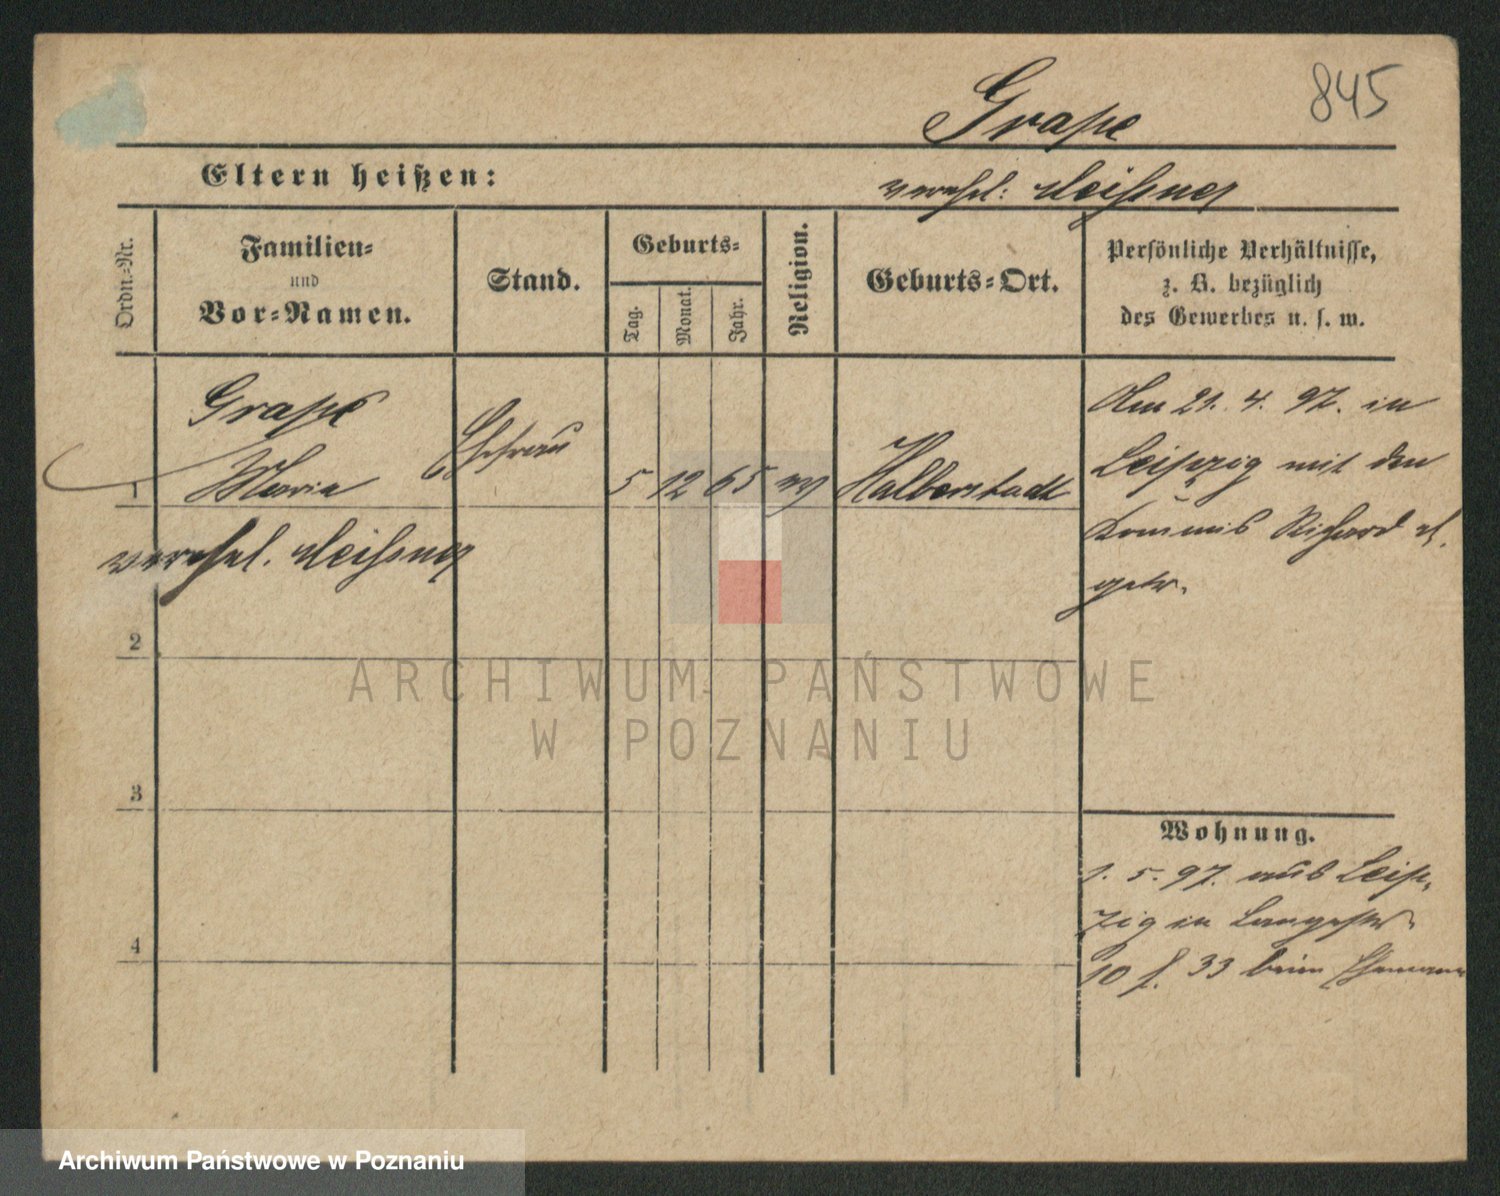 845
Grape
Eltern heißen:
verehel: Meißner
Ordn.-Nr.
Familien-
und
Vor-Namen.
Stand.
Geburts-
Tag.
Monat.
Jahr.
Religion.
Geburts-Ort.
Persönliche Verhältnisse,
z. B. bezüglich
des Gewerbes u. s. w.
Grape
Maria
Ehefrau
1
5 12 65 ev
Halberstadt
verehel. Meißner
Am 21. 4. 97. in
Leipzig mit dem
Kommis Richard M.
getr.
2
3
4
Wohnung.
1. 5. 97. aus Leip-
zig in Langestr.
10 f. 33 beim Ehemann
ARCHIWUM PAŃSTWOWE
W POZNANIU
Archiwum Państwowe w Poznaniu